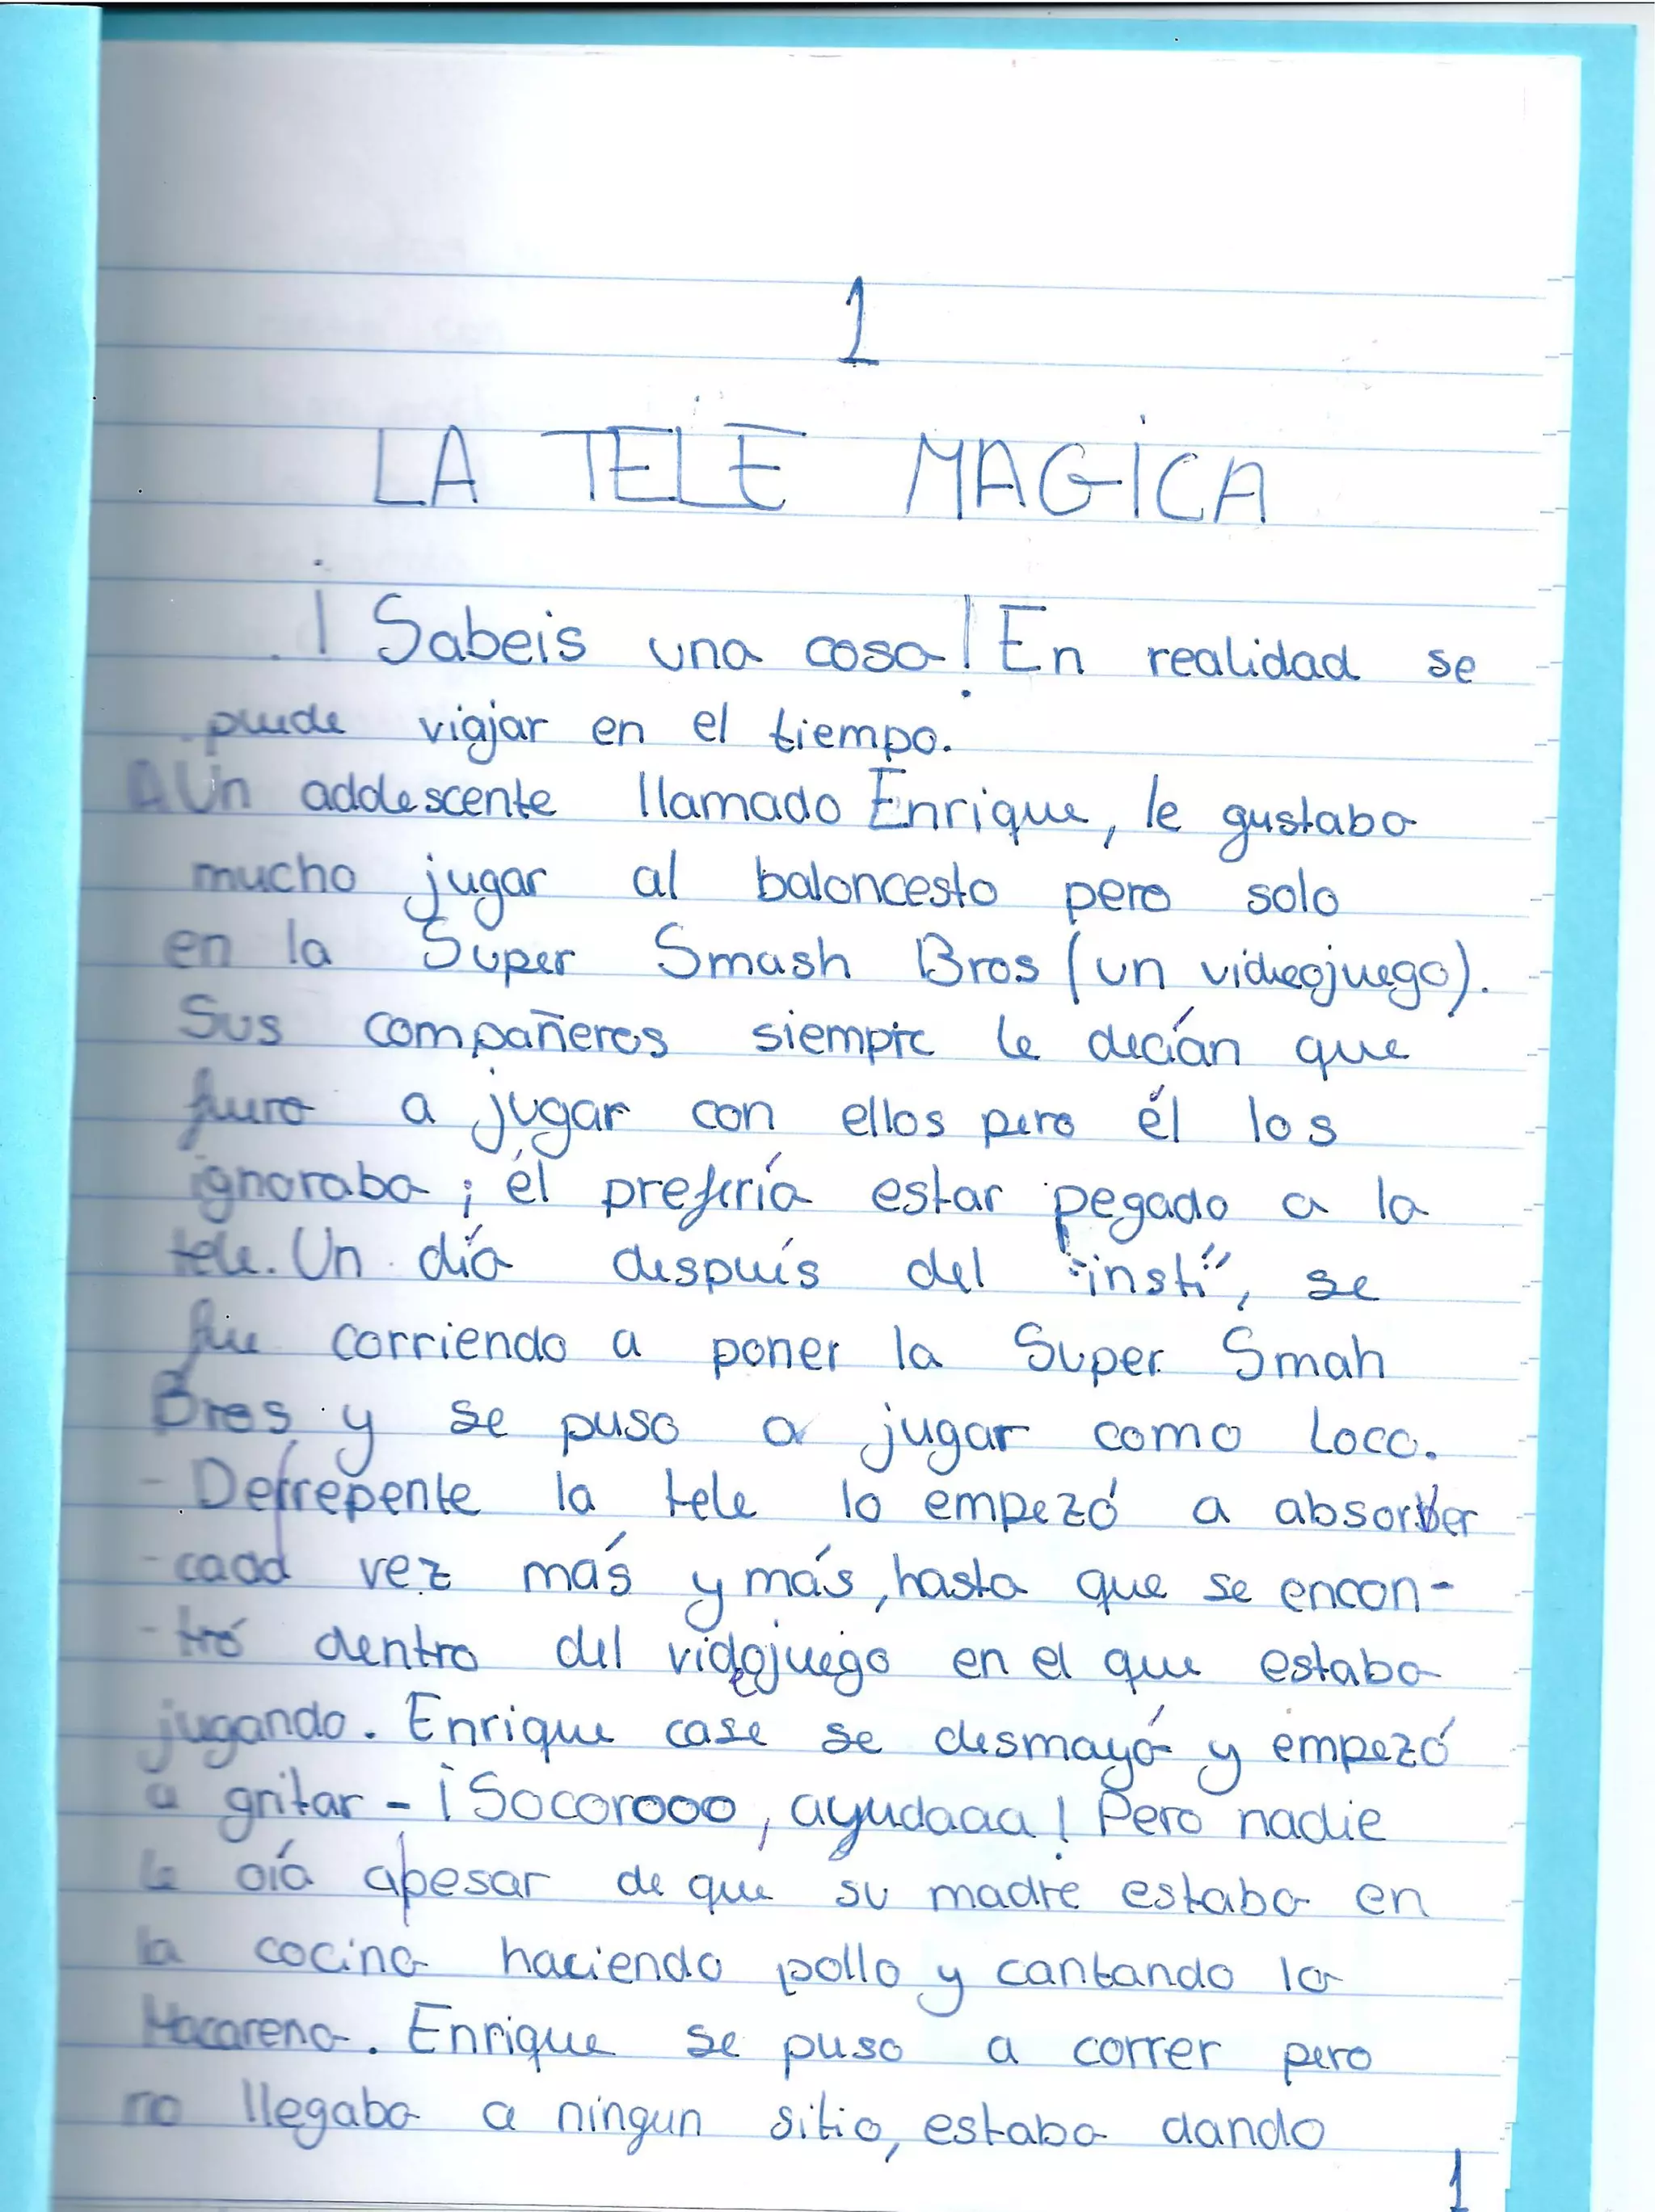 1
LA TELE MAGICA
¡Sabeis una cosa! En realidad se
puede viajar en el tiempo.
A Un adolescente llamado Enrique, le gustaba
mucho jugar al baloncesto pero solo
en la Super Smash Bros (un videojuego).
Sus compañeros siempre le decían que
fuera a jugar con ellos pero él los
ignoraba; él prefería estar pegado a la
tele. Un día después del "insti", se
fue corriendo a poner la Super Smah
Bros y se puso a jugar como loco.
- De/repente la tele lo empezó a absorber
- cada vez más y más, hasta que se encon-
- tró dentro del videojuego en el que estaba
jugando. Enrique case se desmayó y empezó
a gritar - ¡Socorooo, ayudaaa! Pero nadie
le oía a/pesar de que su madre estaba en
la cocina haciendo pollo y cantando la
Macarena. Enrique se puso a correr pero
no llegaba a ningun sitio, estaba dando
1